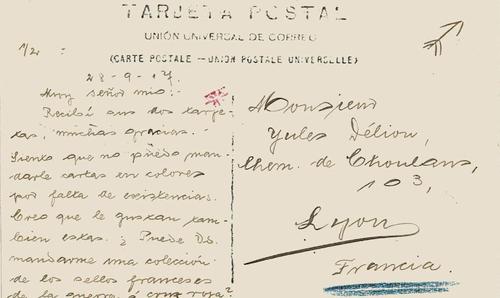 TARJETA POSTAL
UNIÓN UNIVERSAL DE CORREO
(CARTE POSTALE — UNION POSTALE UNIVERSELLE)
28-9-17.
Muy señor mio:
Recibí sus dos tarje-
tas, muchas gracias.
Siento que no puedo man-
darle cartas en colores
por falta de existencias.
Creo que le gustan tam-
bien estas. ¿Puede Ds.
mandarme una colección
de los sellos franceses
de la guerra ó cruz roja?
Monsieur
Yules Délion,
Chem. de Choulans,
103,
Lyon
Francia.